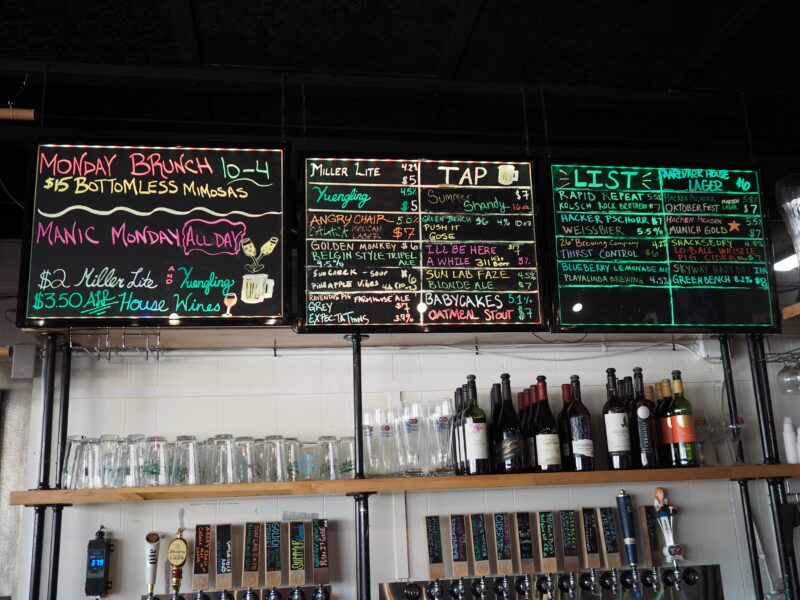 MONDAY BRUNCH 10-4
$15 BOTTOMLESS MIMOSAS
MANIC MONDAY ALL DAY
$2 Miller Lite AND Yuengling
$3.50 House Wines
MILLER LITE 4.2% $5
Yuengling 4.5% $5
ANGRY CHAIR 5.0%
LAGER $7
GOLDEN MONKEY $6
BELGIN STYLE TRIPEL
9.5% ALE
PINEAPPLE VIBES
RAVENOUS PIG FARMHOUSE ALE
GREY $7
EXPECTATIONS 3.9%
TAP
Summer $7
Shandy
GREEN BENCH $6 4% 10oz
PUSH IT
GOSE
I'LL BE HERE
A WHILE
SUN LAB FAZE 4.5%
BLONDE ALE $7
BABYCAKES 5.1%
OATMEAL STOUT $7
LIST
RAPID REPEAT 5.5%
KOLSCH ROCK BROTHERS $7
HACKER PSCHORR $7
WEISSBIER 5.5%
26° BREWING COMPANY
THIRST CONTROL $6
BLUEBERRY LEMONADE
PLAYALINDA BREWING 4.5%
AARDVARK HOUSE
LAGER $6
HACKER PSCHORR
OKTOBERFEST $7
HACKER PSCHORR
MUNICH GOLD $7
SHACKSBURY 4.8%
LO-BALL WHISTLE
CIDER $7
SKYWAY IPA
GREEN BENCH 8.2% $8